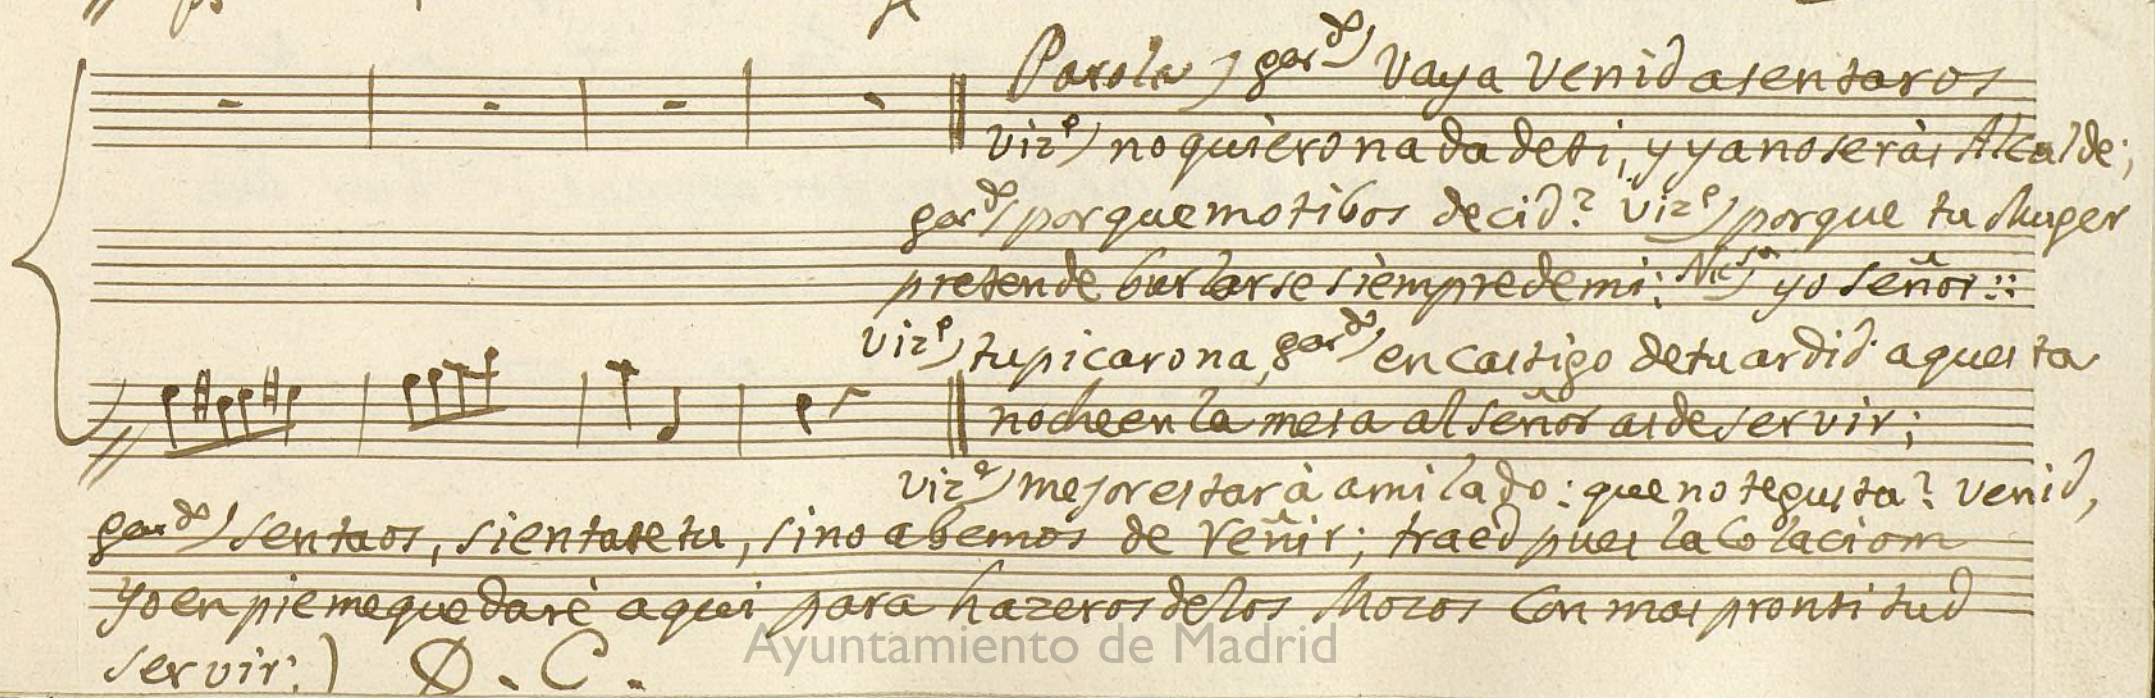 Parola) gar.do) Vaya Venid asentaros
viz.e) no quiero nada de ti, y ya no seràs Alcalde;
gar.do) por que motibos decid? viz.e) porque tu Muger
pretende burlarse sièmpre de mi: yo Señor::
viz.e) tu picarona, gar.do) en castigo de tu ardid aquesta
noche en la mesa al señor as de servir;
viz.e) mejor estarà a mi lado: que no te gusta? Venid,
gar.do) Sentaos, sientate tu, sino abemos de Reñir; traed pues la Colacion
yo en pie me quedarè aqui para hazeros de los Mozos Con mas prontitud
servir:) D. C.
Ayuntamiento de Madrid